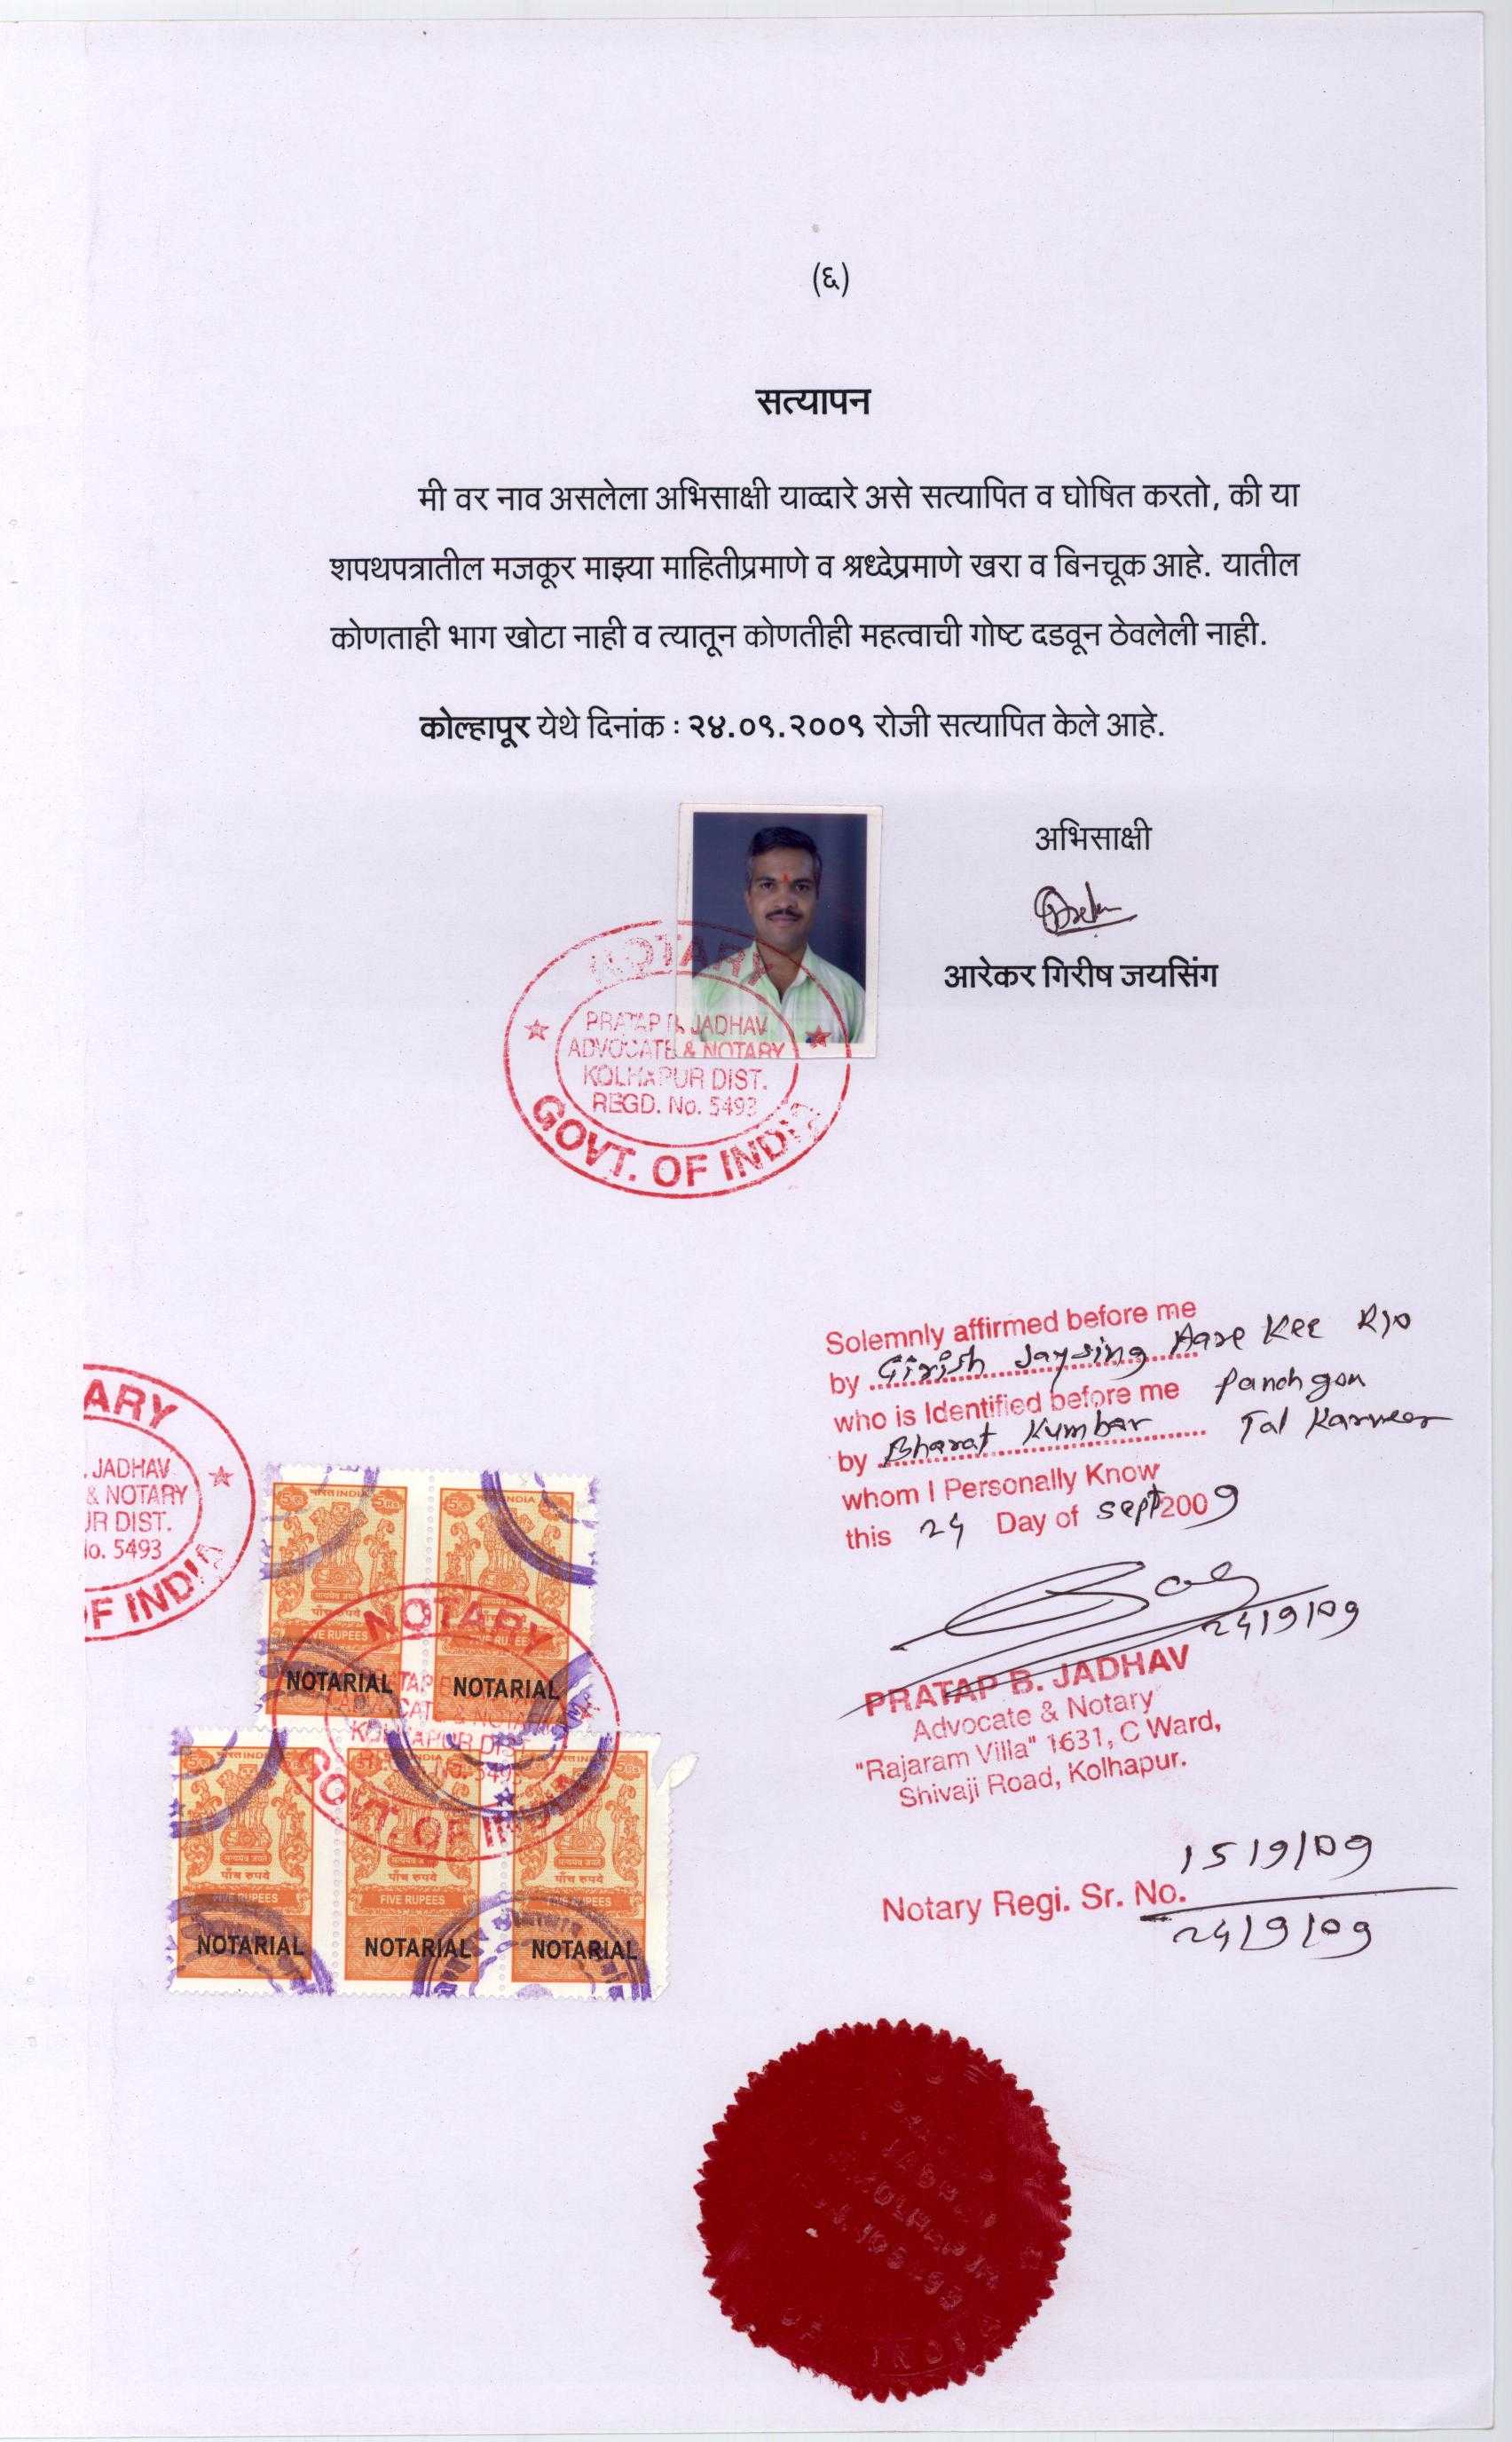 (६)
सत्यापन
मी वर नाव असलेला अभिसाक्षी याव्दारे असे सत्यापित व घोषित करतो, की या
शपथपत्रातील मजकूर माझ्या माहितीप्रमाणे व श्रध्देप्रमाणे खरा व बिनचूक आहे. यातील
कोणताही भाग खोटा नाही व त्यातून कोणतीही महत्वाची गोष्ट दडवून ठेवलेली नाही.
कोल्हापूर येथे दिनांक : २४.०९.२००९ रोजी सत्यापित केले आहे.
अभिसाक्षी
आरेकर गिरीष जयसिंग
NOTARY
PRATAP B. JADHAV
ADVOCATE & NOTARY
KOLHAPUR DIST.
REGD. No. 5493
GOVT. OF INDIA
Solemnly affirmed before me
by Girish Jaysing Aare Kee R/o
who is Identified before me
by Bharat Kumbar Tal Karveer
whom I Personally Know
this 24 Day of Sept 2009
24/9/09
PRATAP B. JADHAV
Advocate & Notary
"Rajaram Villa" 1631, C Ward,
Shivaji Road, Kolhapur.
1519/09
Notary Regi. Sr. No.
24/9/09
ARY
. JADHAV
& NOTARY
UR DIST.
No. 5493
OF INDIA
भारत INDIA
FIVE RUPEES
NOTARIAL NOTARIAL
NOTARY
GOVT. OF INDIA
पाँच रुपये
FIVE RUPEES
NOTARIAL NOTARIAL NOTARIAL